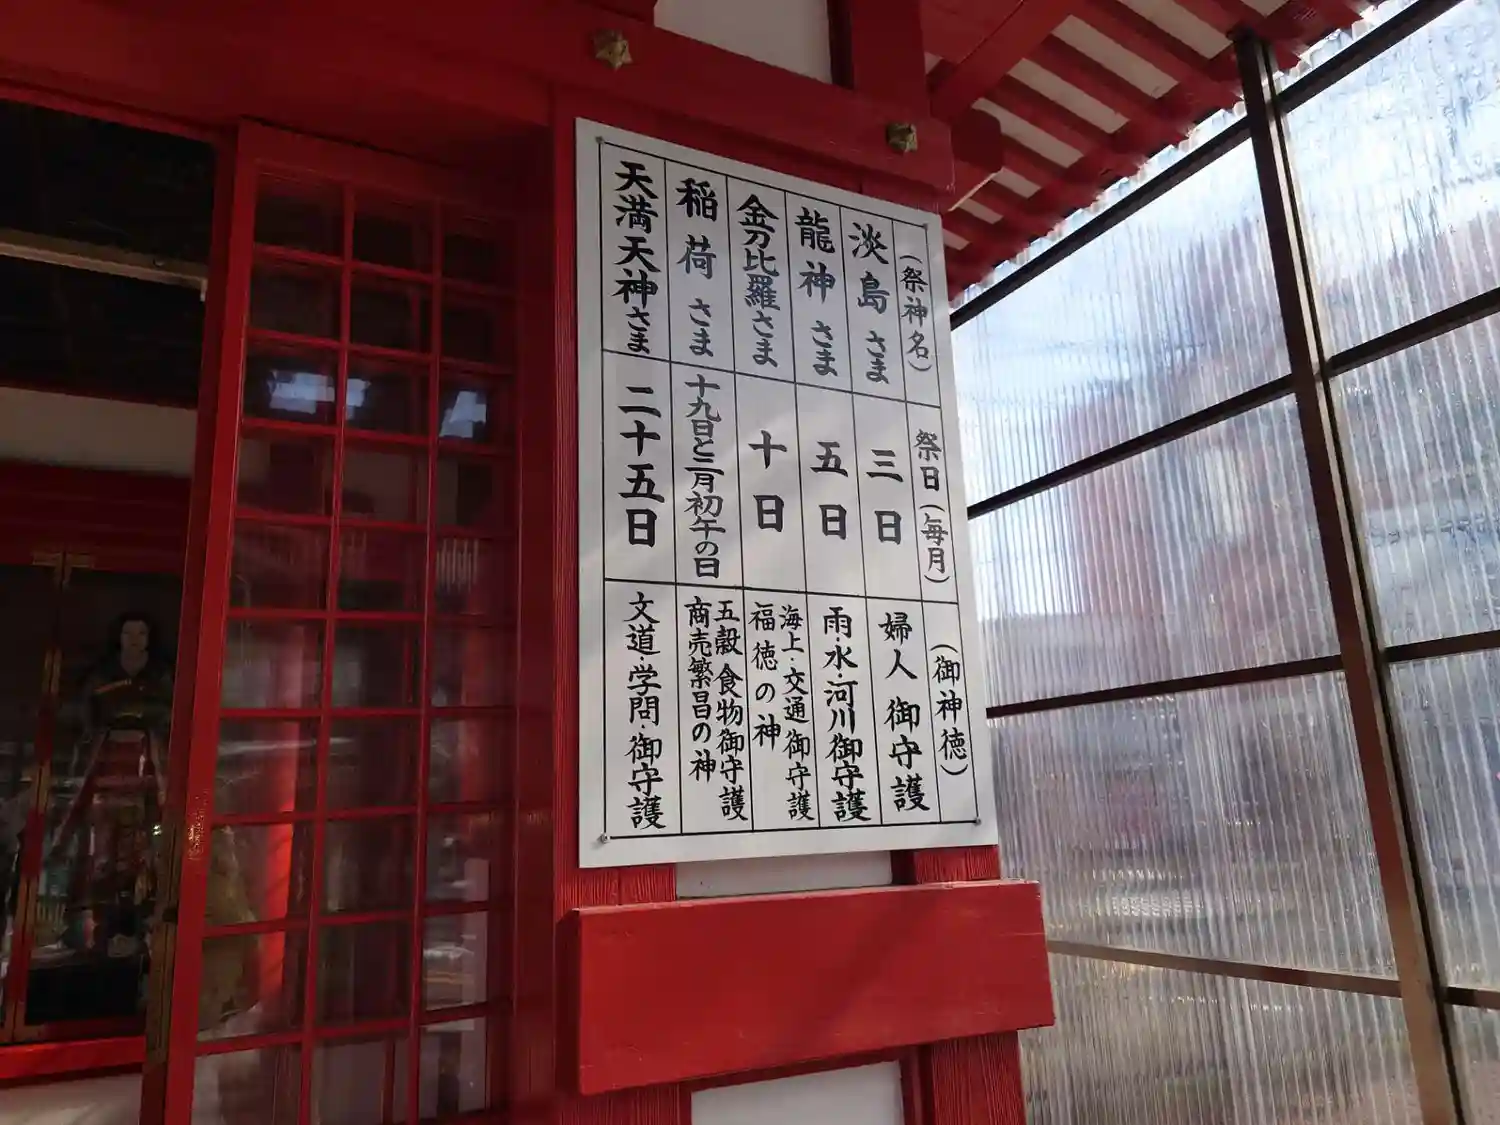 (祭神名) 祭日(毎月) (御神徳)
淡島さま 三日 婦人御守護
龍神さま 五日 雨・水・河川御守護
金刀比羅さま 十日 海上・交通御守護
福徳の神
稲荷さま 十九日と三月初午の日 五穀食物御守護
商売繁昌の神
天満天神さま 二十五日 文道・学問・御守護